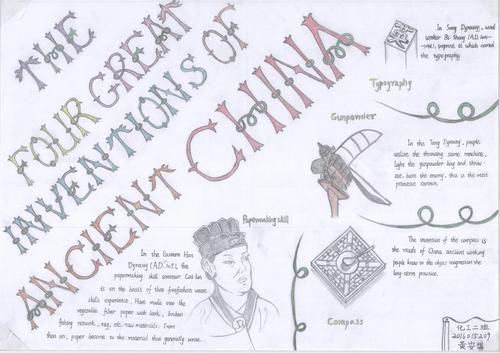 THE
FOUR GREAT
INVENTIONS OF
ANCIENT CHINA
In Song Dynasty, wood
worker Bi Sheng (A.D.
improve it which named
the typography.
Typography
Gunpowder
In the Tang Dynasty, people
utilize the throwing stone machine,
light the gunpowder bag and throw
out, burn the enemy, this is the most
primitive cannon.
Papermaking skill
In the Eastern Han
Dynasty (A.D. 105), the
papermaking skill inventor Cai Lun
is on the basis of the forefathers weave
skills experience. Have made into the
vegetable fiber paper with bark, broken
fishing network, rag, etc. raw materials. From
then on, paper become to the material that generally used.
The invention of the compass is
the result of China ancient working
people know to the object magnetism the
long-term practice.
Compass
化工二班
2015015209
黄安